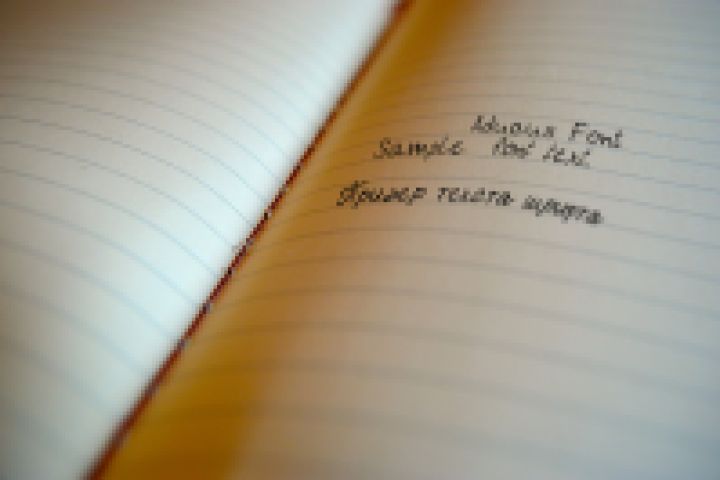 Font
Sample font text
Пример текста шрифта